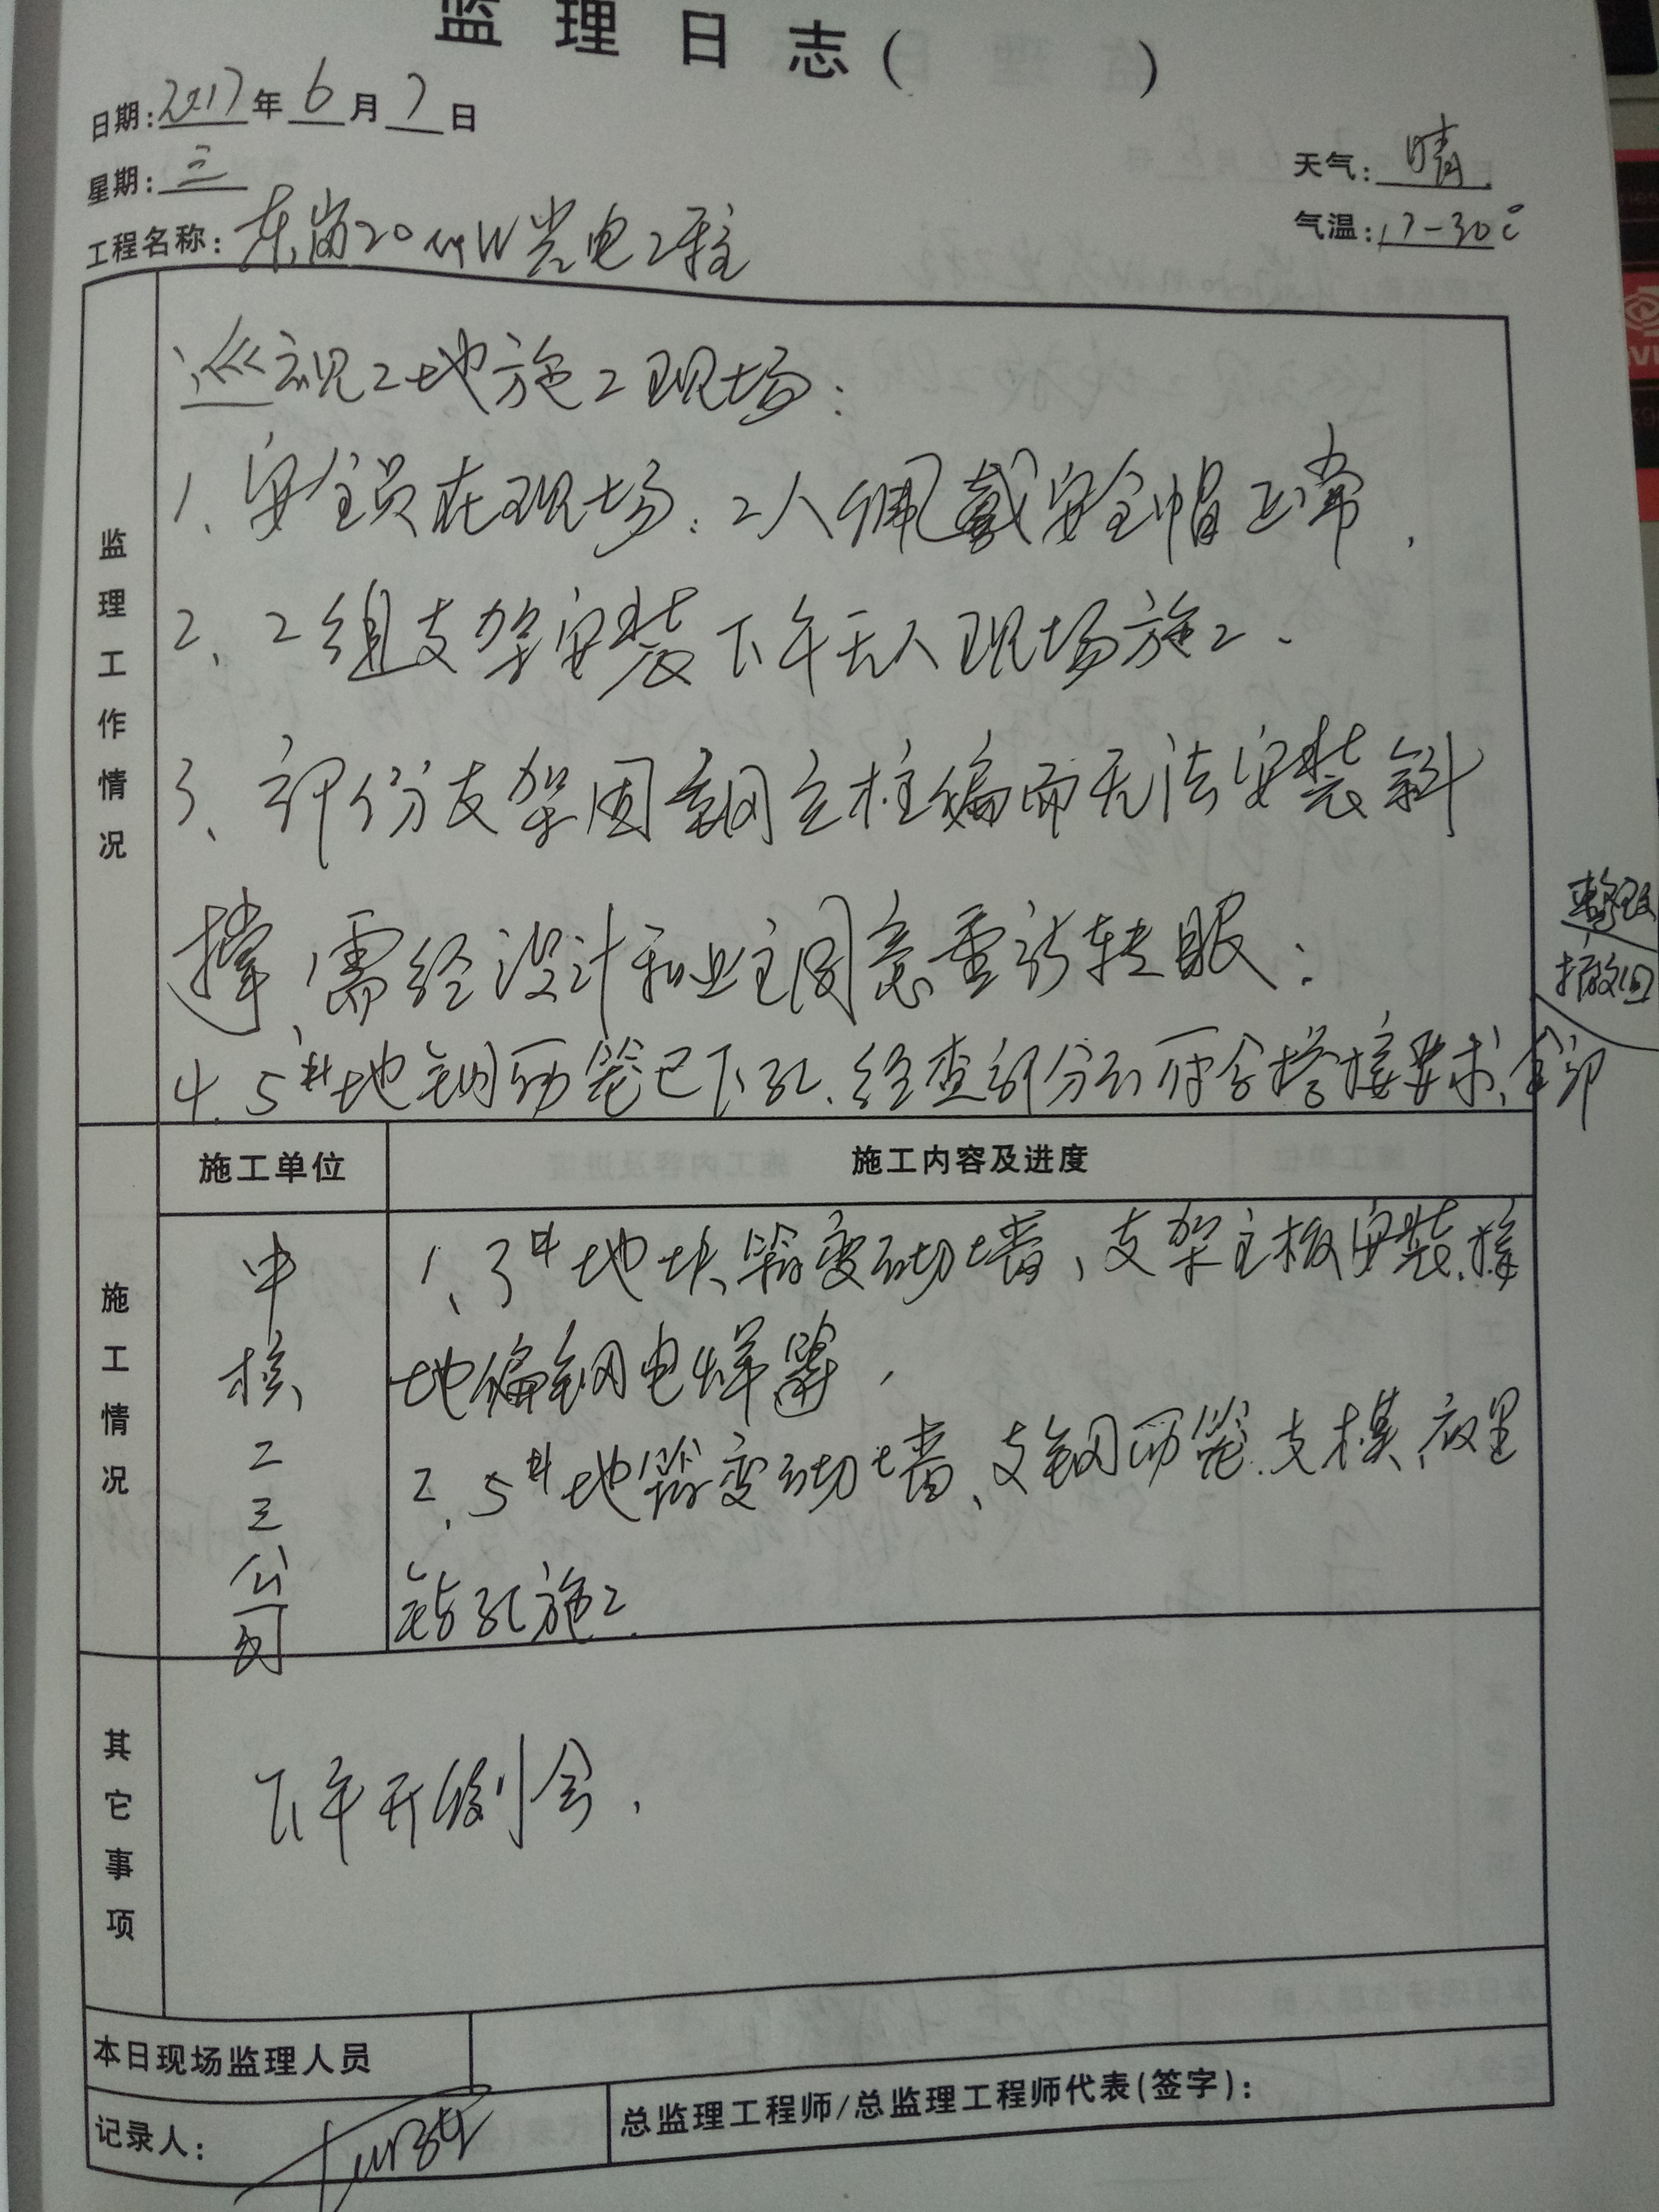 监理日志(          )
日期:2017年6月7日
星期:三
天气:晴
工程名称:东岗20MW光电工程
气温:17-30℃
监理工作情况
巡视工地施工现场:
1、安全员在现场:工人佩戴安全帽正常.
2、2组支架安装下午无人现场施工、
3、部份支架因钢立柱偏而无法安装斜
撑、需经设计和业主同意重新转眼:
4.5#地钢筋笼已下孔.经查部分不符合搭接要求、全部
整改
撤回
施工情况
施工单位
施工内容及进度
中核二三公司
1、3#地块箱变砌墙、支架主板安装.接
地偏钢电焊
2、5#地箱变砌墙、支钢筋笼.支模、
钻孔施工.
其它事项
下午开例会.
本日现场监理人员
记录人:
总监理工程师/总监理工程师代表(签字):